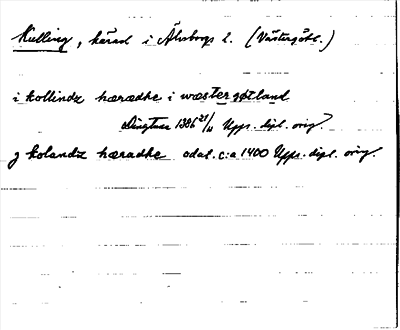 Kulling, härad i Älvsborgs l. (Västergötl.)
i kollindz hæradhe i wæstergötland
Dingtuna 1386 21/11 Upps. dipl. orig
j kolandz hæradhe odat. c:a 1400 Upps. dipl. orig.